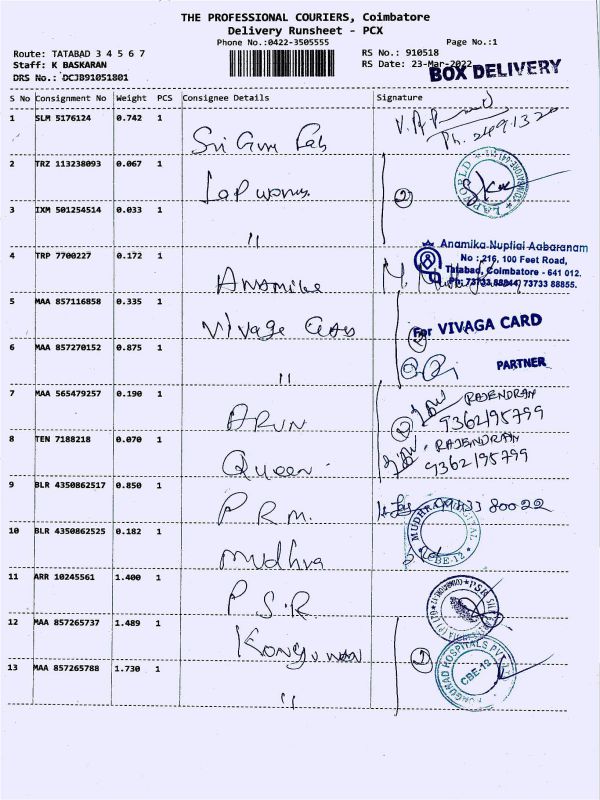 THE PROFESSIONAL COURIERS, Coimbatore
Delivery Runsheet - PCX
Phone No.:0422-3505555 Page No.:1
Route: TATABAD 3 4 5 6 7 RS No.: 910518
Staff: K BASKARAN RS Date: 23-Mar-2022
DRS No.: DCJB91051801
BOX DELIVERY
S No Consignment No Weight PCS Consignee Details Signature
1 SLM 5176124 0.742 1 Sri Guru Lab
2 TRZ 113238093 0.067 1 Lap World 2
3 IXM 501254514 0.033 1 "
4 TRP 7700227 0.172 1 Anamika
Anamika Nuptial Aabaranam
No : 216, 100 Feet Road,
Tatabad, Coimbatore - 641 012.
Ph: 73733 88844, 73733 88855.
5 MAA 857116858 0.335 1 Vivaga Cards 2
For VIVAGA CARD
6 MAA 857270152 0.875 1 "
PARTNER
7 MAA 565479257 0.190 1 ARUN RAJENDRAN
9362195799
8 TEN 7188218 0.070 1 Queen RAJENDRAN
9362195799
9 BLR 4350862517 0.850 1 P R M.
10 BLR 4350862525 0.182 1 Mudhra
CBE-12
11 ARR 10245561 1.400 1 P.S.R
12 MAA 857265737 1.489 1 Kongunad 2
13 MAA 857265788 1.730 1 "
KONGUNAD HOSPITALS PVT LTD
CBE-12